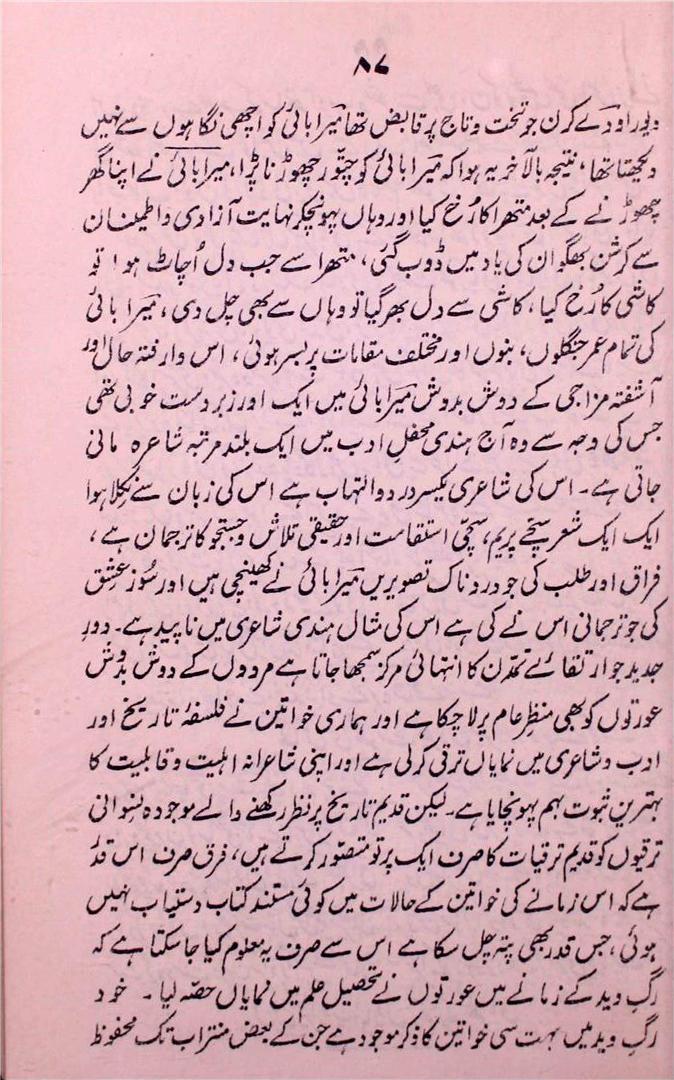 ۸۷
دیور اودے کرن جو تخت و تاج پر قابض تھا میرا بائی کو اچھی نگاہوں سے نہیں
دیکھتا تھا، نتیجہ بالآخر یہ ہوا کہ میرا بائی کو چتّور چھوڑنا پڑا، میرا بائی نے اپنا گھر
چھوڑنے کے بعد متھرا کا رُخ کیا اور وہاں پہونچکر نہایت آزادی و اطمینان
سے کرشن بھگوان کی یاد میں ڈوب گئی، متھرا سے جب دل اُچاٹ ہوا تو
کاشی کا رُخ کیا، کاشی سے دل بھر گیا تو وہاں سے بھی چل دی، میرا بائی
کی تمام عمر جنگلوں، بنوں اور مختلف مقامات پر بسر ہوئی، اس وارفتہ حال اور
آشفتہ مزاجی کے دوش بدوش میرا بائی میں ایک اور زبردست خوبی تھی
جس کی وجہ سے وہ آج ہندی محفلِ ادب میں ایک بلند مرتبہ شاعرہ مانی
جاتی ہے۔ اس کی شاعری یکسر درد و التہاب ہے اس کی زبان سے نکلا ہوا
ایک ایک شعر سچّے پریم، سچّی استقامت اور حقیقی تلاش و جستجو کا ترجمان ہے،
فراق اور طلب کی جو دردناک تصویریں میرا بائی نے کھینچی ہیں اور سُوزِ عشق
کی جو ترجمانی اس نے کی ہے اس کی مثال ہندی شاعری میں ناپید ہے۔ دورِ
جدید جو ارتقائے تمّدن کا انتہائی مرکز سمجھا جاتا ہے مردوں کے دوش بدوش
عورتوں کو بھی منظرِ عام پر لا چکا ہے اور ہماری خواتین نے فلسفۂ تاریخ اور
ادب و شاعری میں نمایاں ترقی کرلی ہے اور اپنی شاعرانہ اہلیت و قابلیت کا
بہترین ثبوت بہم پہونچایا ہے۔ لیکن قدیم تاریخ پر نظر رکھنے والے موجودہ نسوانی
ترقیوں کو قدیم ترقیات کا صرف ایک پرتو متصوّر کرتے ہیں، فرق صرف اس قدر
ہے کہ اس زمانے کی خواتین کے حالات میں کوئی مستند کتاب دستیاب نہیں
ہوئی، جس قدر بھی پتہ چل سکا ہے اس سے صرف یہ معلوم کیا جا سکتا ہے کہ
رگ وید کے زمانے میں عورتوں نے تحصیل علم میں نمایاں حصّہ لیا۔ خود
رگ وید میں بہت سی خواتین کا ذکر موجود ہے جن کے بعض منتر اب تک محفوظ